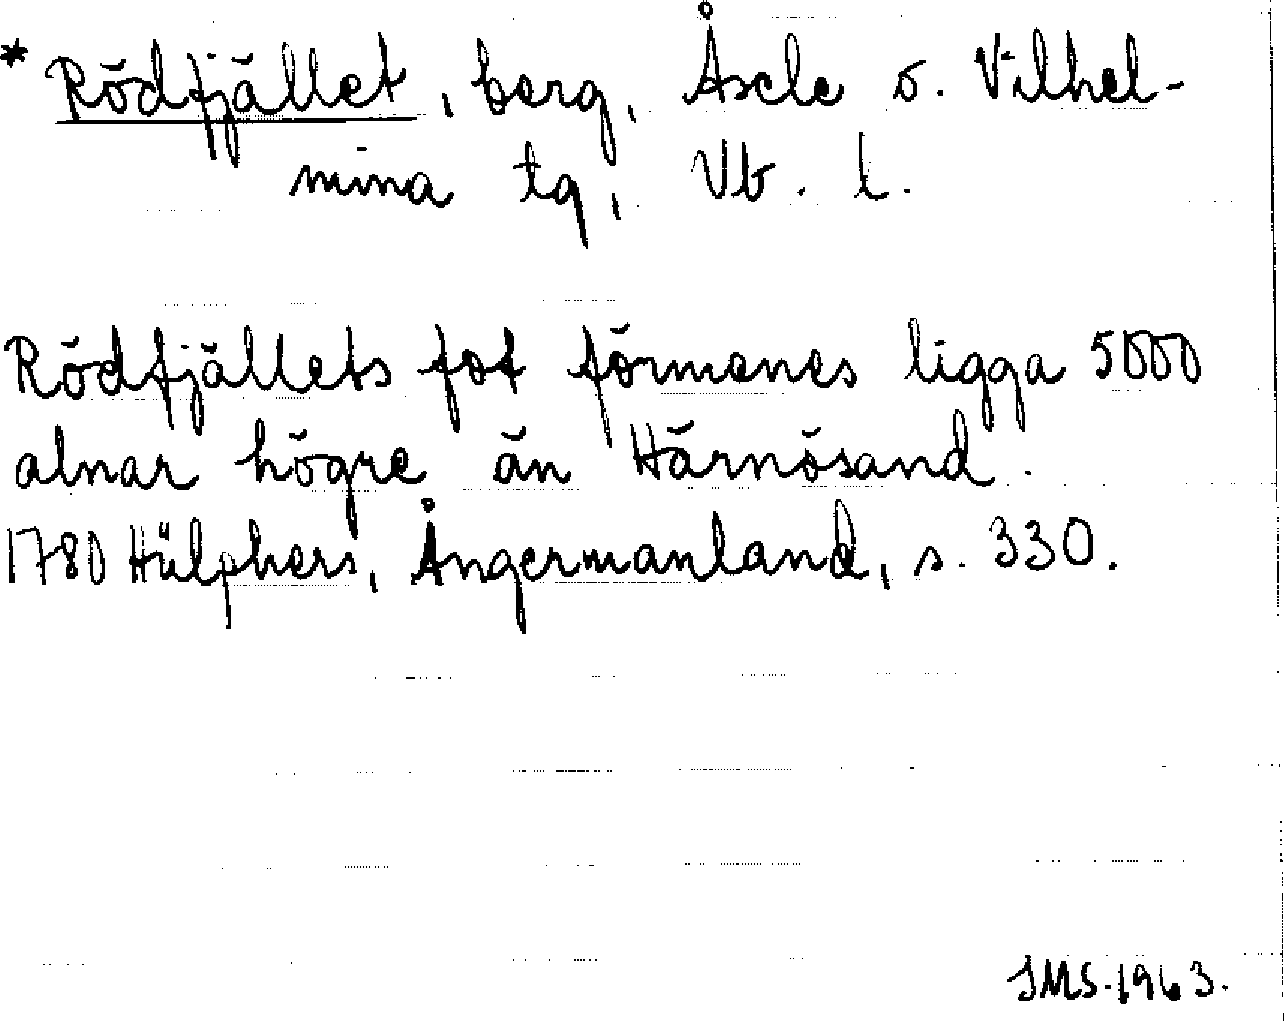 * Rödfjället, berg, Åsele o. Vilhel-
mina tg, Vb. l.
Rödfjällets fot förmenes ligga 5000
alnar högre än Härnösand.
1780 Hülphers, Ångermanland, s. 330.
JMS.1963.